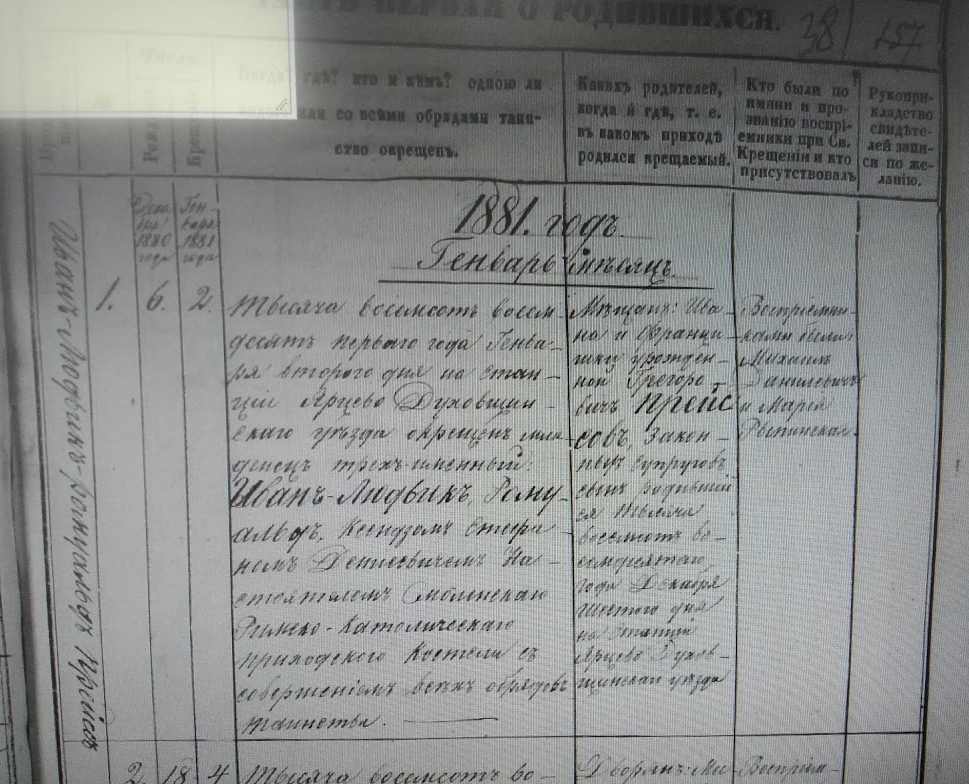 ЧАСТЬ ПЕРВАЯ О РОДИВШИХСЯ.
38
157
Числа.
Когда? гдѣ? кто и кѣмъ? одною ли
или со всѣми обрядами таин-
ство окрещенъ.
Какихъ родителей,
когда и гдѣ, т. е.
въ какомъ приходѣ
родился крещаемый.
Кто были по
имяни и про-
званію воспрі-
емники при Св.
Крещеніи и кто
присутствовалъ
Рукопри-
кладство
свидѣте-
лей запи-
си по же-
ланію.
1880
года
Ген-
варя
1881
года
1881. годъ.
Генварь мѣсяцъ.
Иванъ-Людвикъ-Ромуальдъ Прейсъ
1. 6. 2.
Тысяча восемсотъ восем-
десятъ перваго года Генва-
ря втораго дня на стан-
ціи Ярцево Духовщин-
скаго уѣзда окрещенъ мла-
денецъ трехъ-именный:
Иванъ-Людвикъ, Рому-
альдъ, Ксендзомъ Стефа-
номъ Денисевичемъ На-
стоятелемъ Смоленскаго
Римско-Католическаго
приходского Костела съ
совершеніемъ всѣхъ обрядовъ
таинства.
Мѣщанъ: Ива-
на и Франци-
шки урожден-
ной Грегоро-
вичъ Прейс-
совъ, Закон-
ныхъ супруговъ
сынъ родивший-
ся тысяча
восемсотъ во-
семдесятаго
года Декабря
шестого дня
на станціи
Ярцево Духов-
щинскаго уѣзда
Воспріемни-
ками были:
Михаилъ
Данилевичъ
и Марія
2. 18. 4
Тысяча восемсотъ во-
Дворянъ: Ми-
Воспріем-